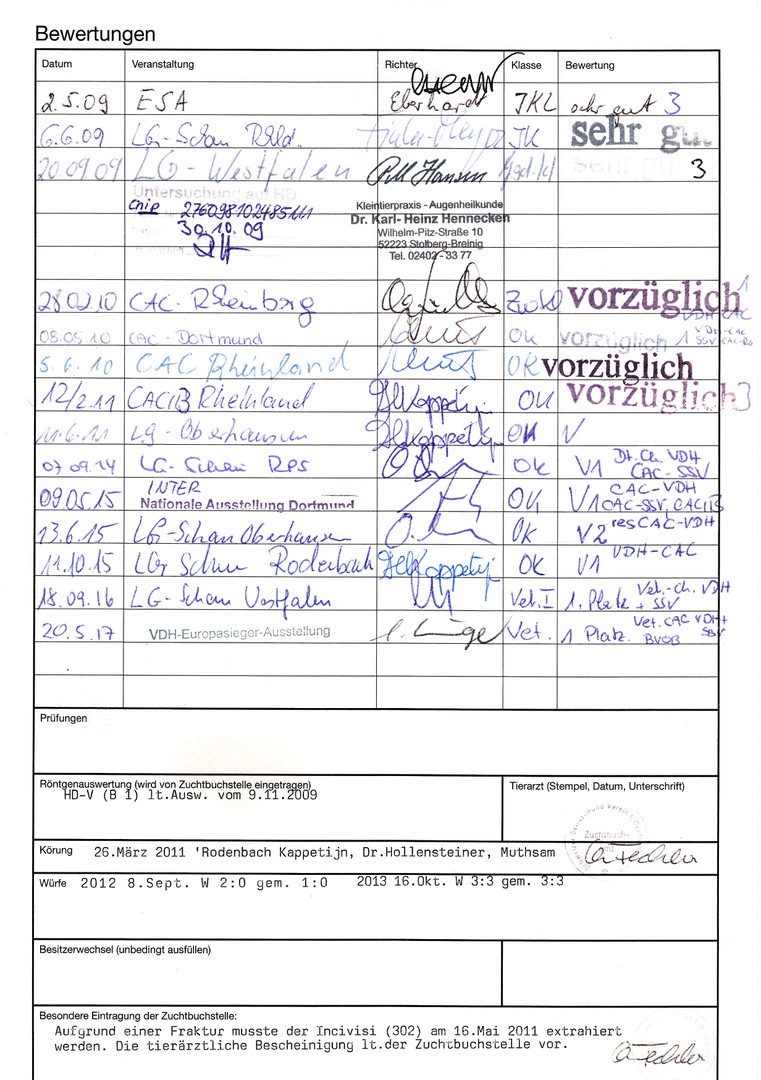 Bewertungen
Datum Veranstaltung Richter Klasse Bewertung
2.5.09 ESA Eberhardt JKL sehr gut 3
6.6.09 LG-Schau Rhld. JK sehr gut
20.09.09 LG-Westfalen P.M Hansen sehr gut 3
Untersuchung auf HD
Chip 276098102485111
30.10.09
Kleintierpraxis - Augenheilkunde
Dr. Karl- Heinz Hennecken
Wilhelm-Pitz-Straße 10
52223 Stolberg-Breinig
Tel. 02402 - 33 77
28.02.10 CAC-Rheinberg vorzüglich 1
VDH CAC
08.05.10 CAC-Dortmund OK vorzüglich 1 VDH-CAC
5.6.10 CAC Rheinland OK vorzüglich
12/2.11 CACIB Rheinland H Kappetijn OK vorzüglich 3
11.6.11 LG-Oberhausen H Kappetijn OK V
07.09.14 LG-Schau RPS OK V1 Dt.Ch. VDH
CAC-SSV
09.05.15 INTER
Nationale Ausstellung Dortmund OK V1 CAC-VDH
CAC-SSV, CACIB
13.6.15 LG-Schau Oberhausen OK V2 resCAC-VDH
11.10.15 LG Schau Rodenbach H Kappetijn OK V1 VDH-CAC
18.09.16 LG-Schau Westfalen Vet.I 1. Platz Vet.-Ch. VDH
+ SSV
20.5.17 VDH-Europasieger-Ausstellung Vet. 1 Platz. Vet. CAC VDH+
BVOB SSV
Prüfungen
Röntgenauswertung (wird von Zuchtbuchstelle eingetragen) Tierarzt (Stempel, Datum, Unterschrift)
HD-V (B 1) lt.Ausw. vom 9.11.2009
Zuchtbuch-
Körung 26.März 2011 'Rodenbach Kappetijn, Dr.Hollensteiner, Muthsam
Würfe 2012 8.Sept. W 2:0 gem. 1:0 2013 16.Okt. W 3:3 gem. 3:3
Besitzerwechsel (unbedingt ausfüllen)
Besondere Eintragung der Zuchtbuchstelle:
Aufgrund einer Fraktur musste der Incivisi (302) am 16.Mai 2011 extrahiert
werden. Die tierärztliche Bescheinigung lt.der Zuchtbuchstelle vor.